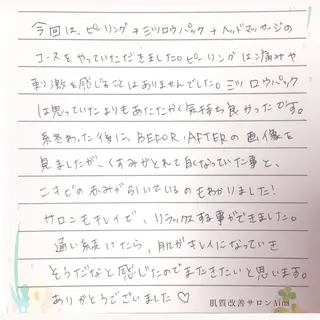 今回は、ピーリング+ミツロウパック+ヘッドマッサージの
コースをやっていただきました。ピーリングは痛みや
刺激を感じることはありませんでした。ミツロウパック
は思っていたよりもあたたかく気持ち良かったです。
終わった後に、BEFOR・AFTERの画像を
見ましたが、くすみがとれて白くなっていた事と、
ニキビの赤みが引いているのもわかりました!
サロンもキレイで、リラックスする事ができました。
通い続けたら、肌がキレイになっていき
そうだなと感じたのでまたきたいと思います。
ありがとうございました♡
肌質改善サロンAina